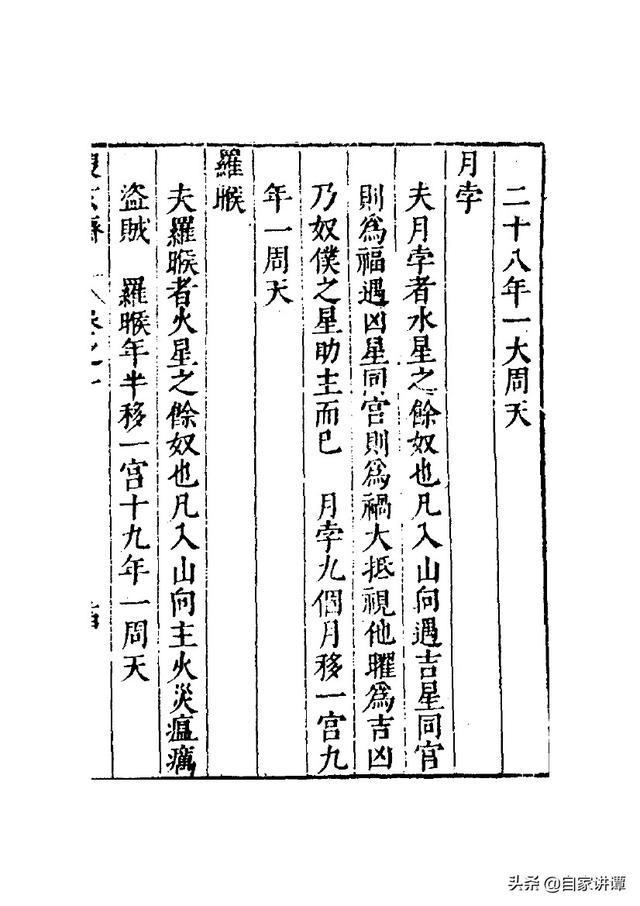 二十八年一大周天
月孛
夫月孛者水星之餘奴也凡入山向遇吉星同宫
則爲福遇凶星同宫則爲禍大抵視他曜爲吉凶
乃奴僕之星助主而已　月孛九個月移一宫九
年一周天
羅㬋
夫羅㬋者火星之餘奴也凡入山向主火災瘟癘
盗賊　羅㬋年半移一宫十九年一周天
卷之一
头条 @自家讲谭